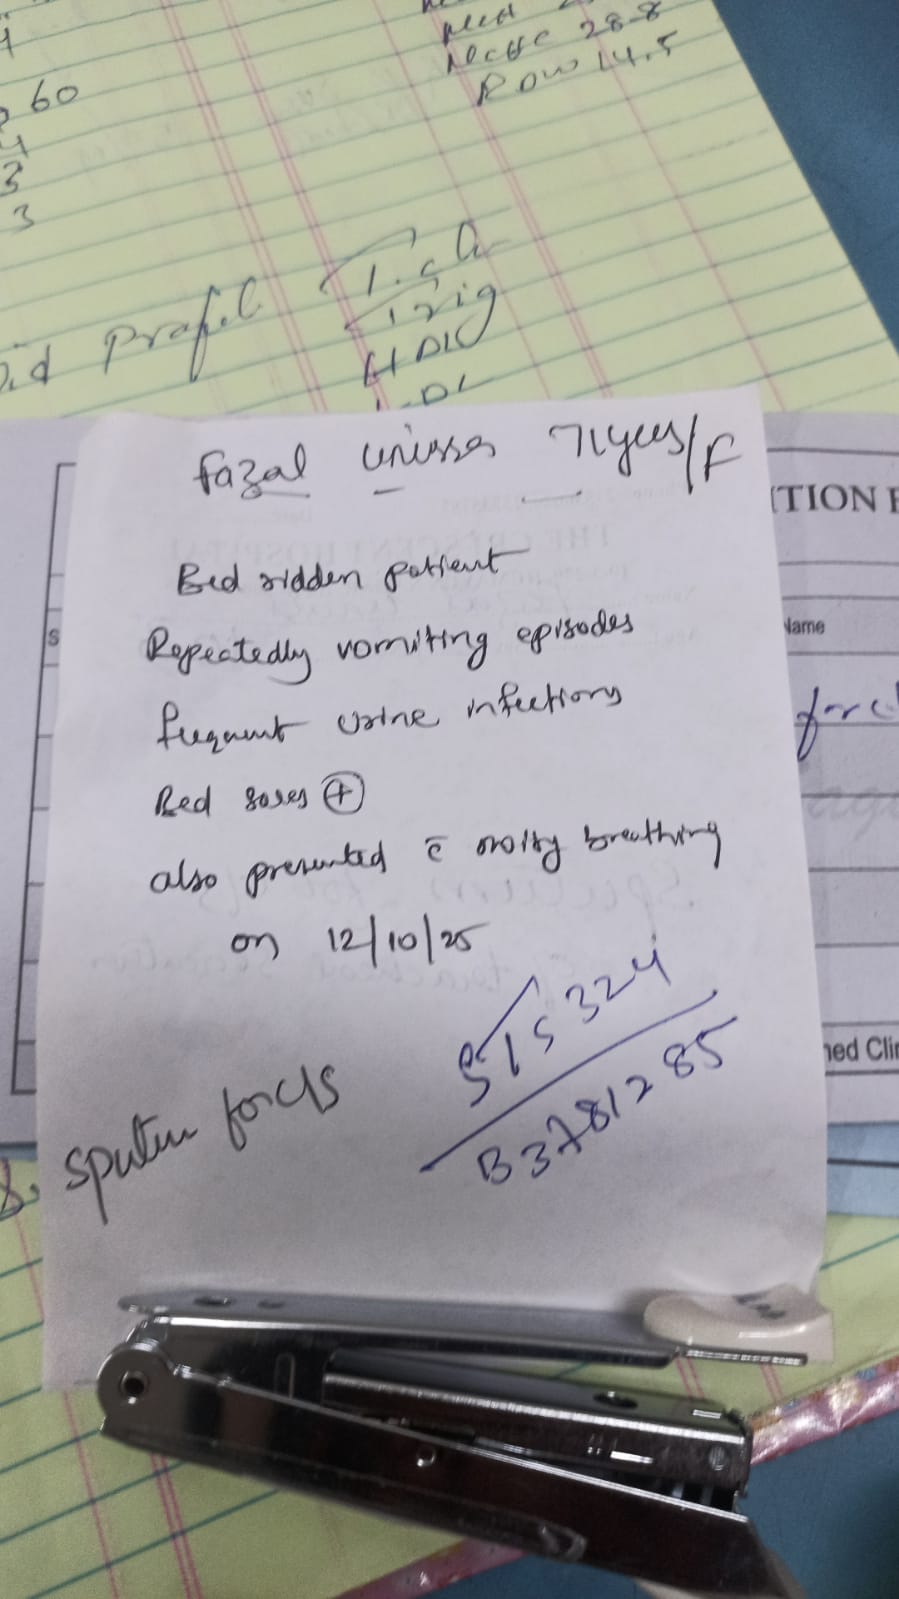 28.8
RDW 14.5
60
4
3
3
profil
Trig
HDL
LDL
Fazal unissa 71yees/F
Bed ridden patient
Repeatedly vomiting episodes
frequent urine infections
Bed sores +
also presented c̄ noisy breathing
on 12/10/25
515324
B3781285
Sputum for c/s
TION
Name
ned Clin